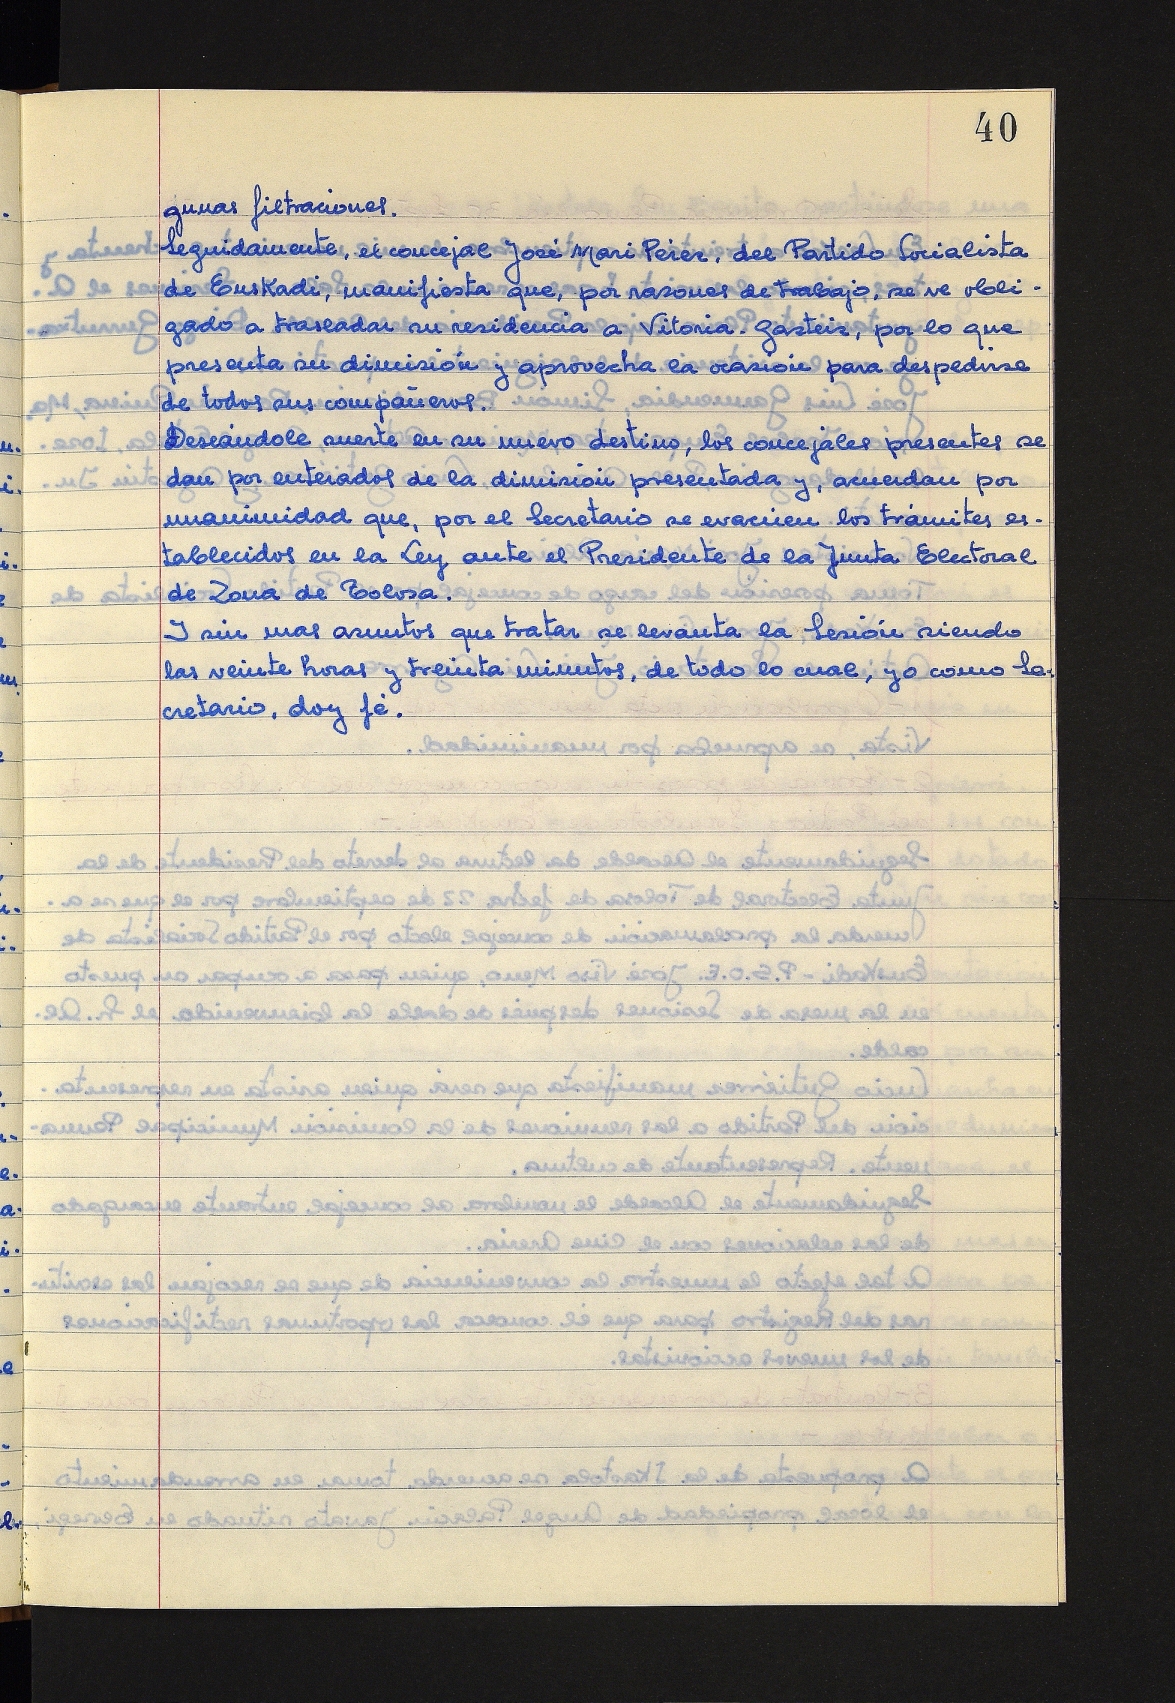 40
gunas filtraciones.
Seguidamente, el concejal José Mari Pérez, del Partido Socialista
de Euskadi, manifiesta que, por razones de trabajo, se ve obli-
gado a trasladar su residencia a Vitoria-Gasteiz, por lo que
presenta su dimisión y aprovecha la ocasión para despedirse
de todos sus compañeros.
Deseándole suerte en su nuevo destino, los concejales presentes se
dan por enterados de la dimisión presentada y, acuerdan por
unanimidad que, por el Secretario se evacúen los trámites es-
tablecidos en la Ley ante el Presidente de la Junta Electoral
de Zona de Tolosa.
Y sin mas asuntos que tratar se levanta la Sesión siendo
las veinte horas y treinta minutos, de todo lo cual, yo como Se-
cretario, doy fé.